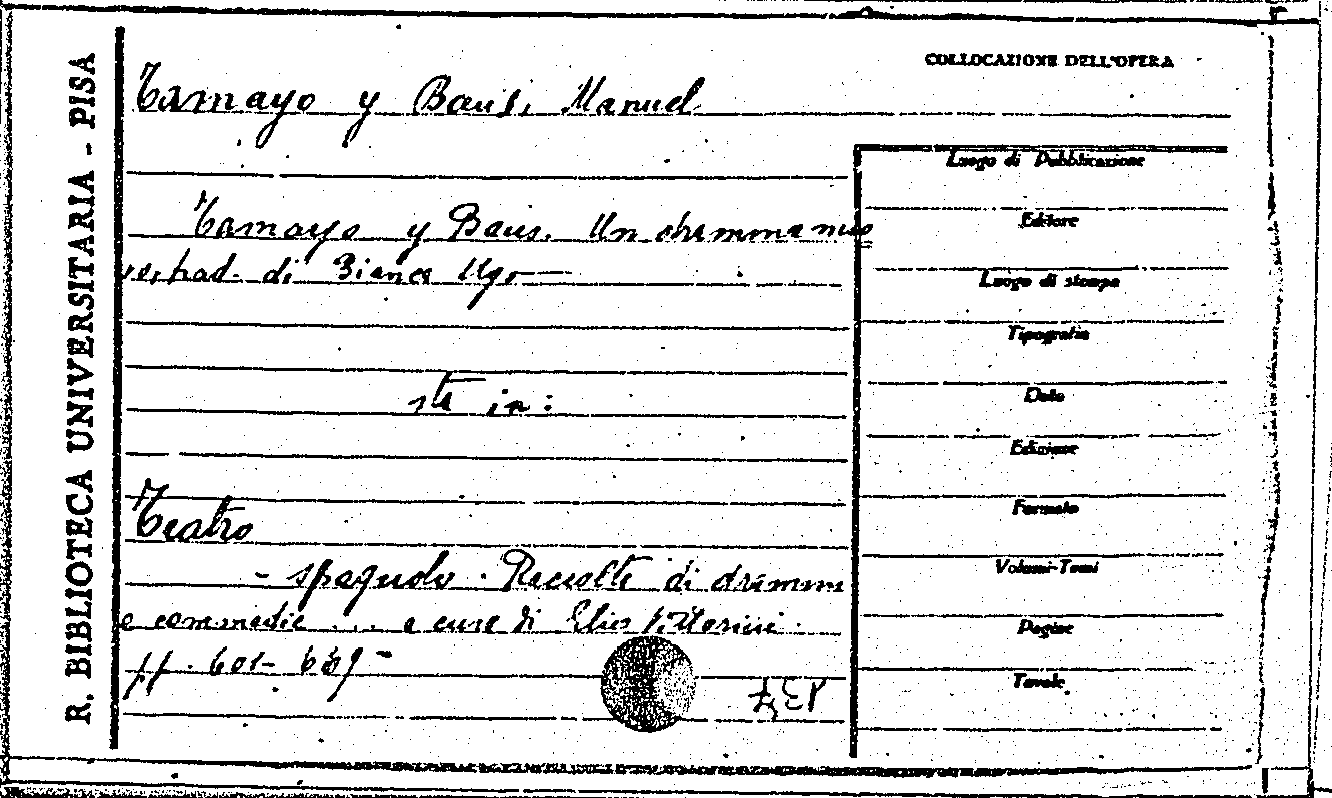 R. BIBLIOTECA UNIVERSITARIA - PISA
COLLOCAZIONE DELL'OPERA
Tamayo y Baus, Manuel
Tamayo y Baus. Un dramma nuo
vo, trad. di Bianca Ugo
sta in:
Teatro
- spagnolo. Raccolta di drammi
e commedie ... a cura di Elio Vittorini.
pp. 601-
Luogo di Pubblicazione
Editore
Luogo di stampa
Tipografia
Data
Edizione
Formato
Volumi-Tomi
Pagine
Tavole